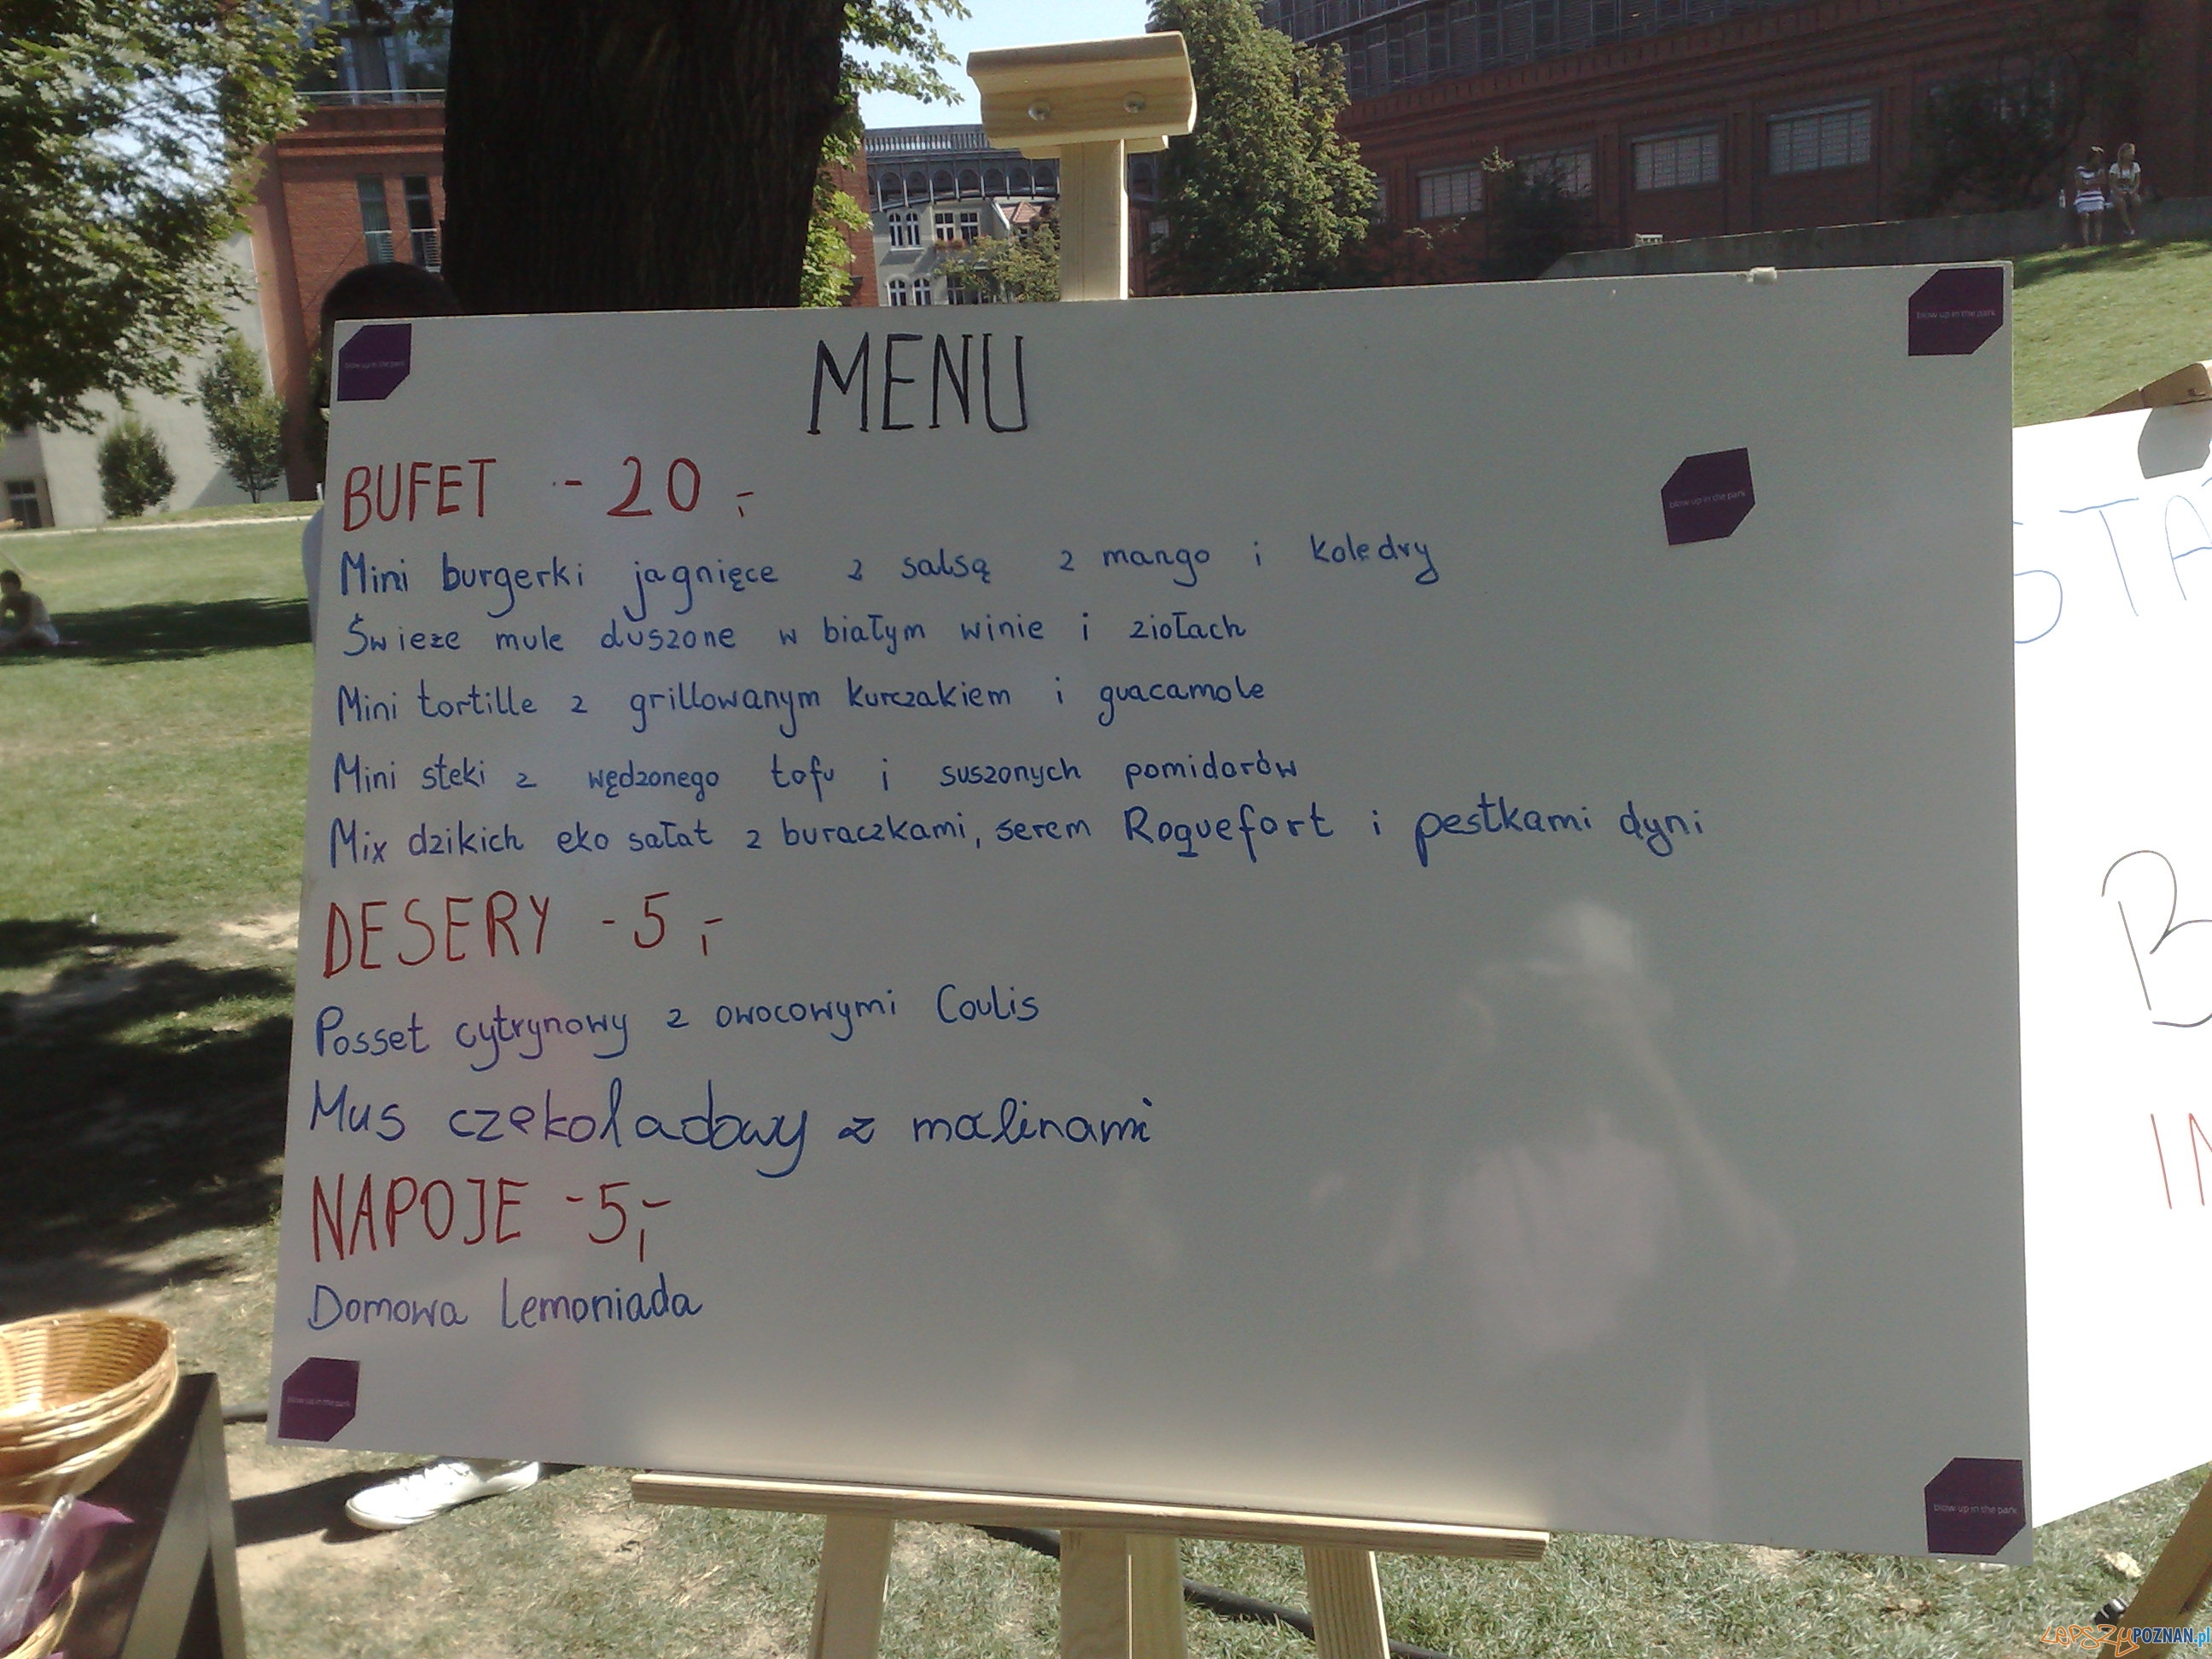 MENU
BUFET - 20,-
Mini burgerki jagnięce z salsą z mango i kolędry
Świeże mule duszone w białym winie i ziołach
Mini tortille z grillowanym kurczakiem i guacamole
Mini steki z wędzonego tofu i suszonych pomidorów
Mix dzikich eko sałat z buraczkami, serem Roquefort i pestkami dyni
DESERY - 5,-
Posset cytrynowy z owocowymi Coulis
Mus czekoladowy z malinami
NAPOJE - 5,-
Domowa Lemoniada
blow up in the park
blow up in the park
blow up in the park
blow up in the park
blow up in the park
STA
B
IN
LEPSZYPOZNAN.pl